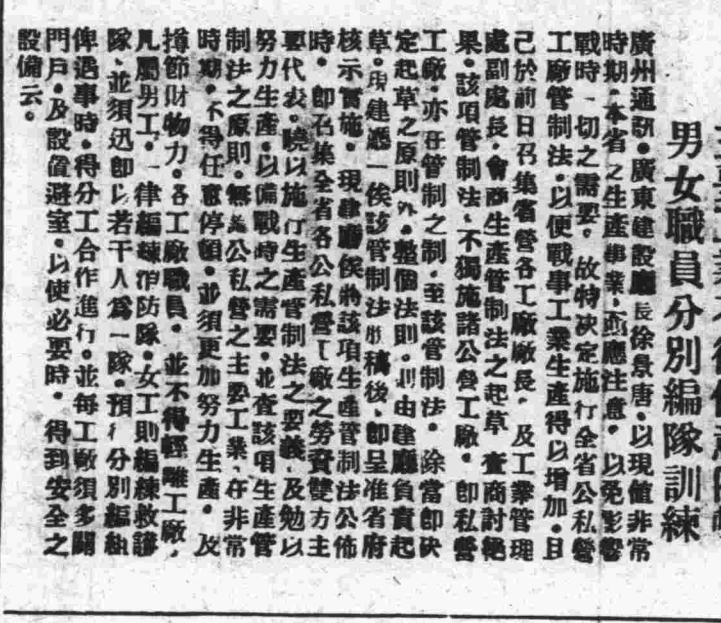 男女職員分別編隊訓練
廣州通訊•廣東建設廳長徐景唐•以現值非常
時期•本省之生產事業•亟應注意•以免影響
戰時一切之需要•故特决定施行全省公私營
工廠管制法•以便戰事工業生產得以增加•且
己於前日召集省營各工廠廠長、及工業管理
處副處長、會商生產管制法之起草、查商討絶
果•該項管制法、不獨施諸公營工廠•即私營
工廠•亦在管制之制•至該管制法•除當即决
定起草之原則外•整個法則•則由建廳負責起
草•現建廳一俟該管制法脫稿後、即呈准省府
核示實施•現建廳俟將該項生產管制法公佈
時•即召集全省各公私營工廠之勞資雙方主
要代表•曉以施行生產管制法之要義、及勉以
努力生產•以備戰時之需要•並查該項生產管
制法之原則•無論公私營之主要工業、在非常
時期•不得任意停頓•並須更加努力生產•及
撙節財物力•各工廠職員•並不得輕離工廠、
凡屬男工•一律編練消防隊•女工則編練救護
隊、並須迅即以若干人爲一隊•預行分別編組
俾遇事時•得分工合作進行•並每工廠須多闢
門戶•及設置避室•以使必要時•得到安全之
設備云。